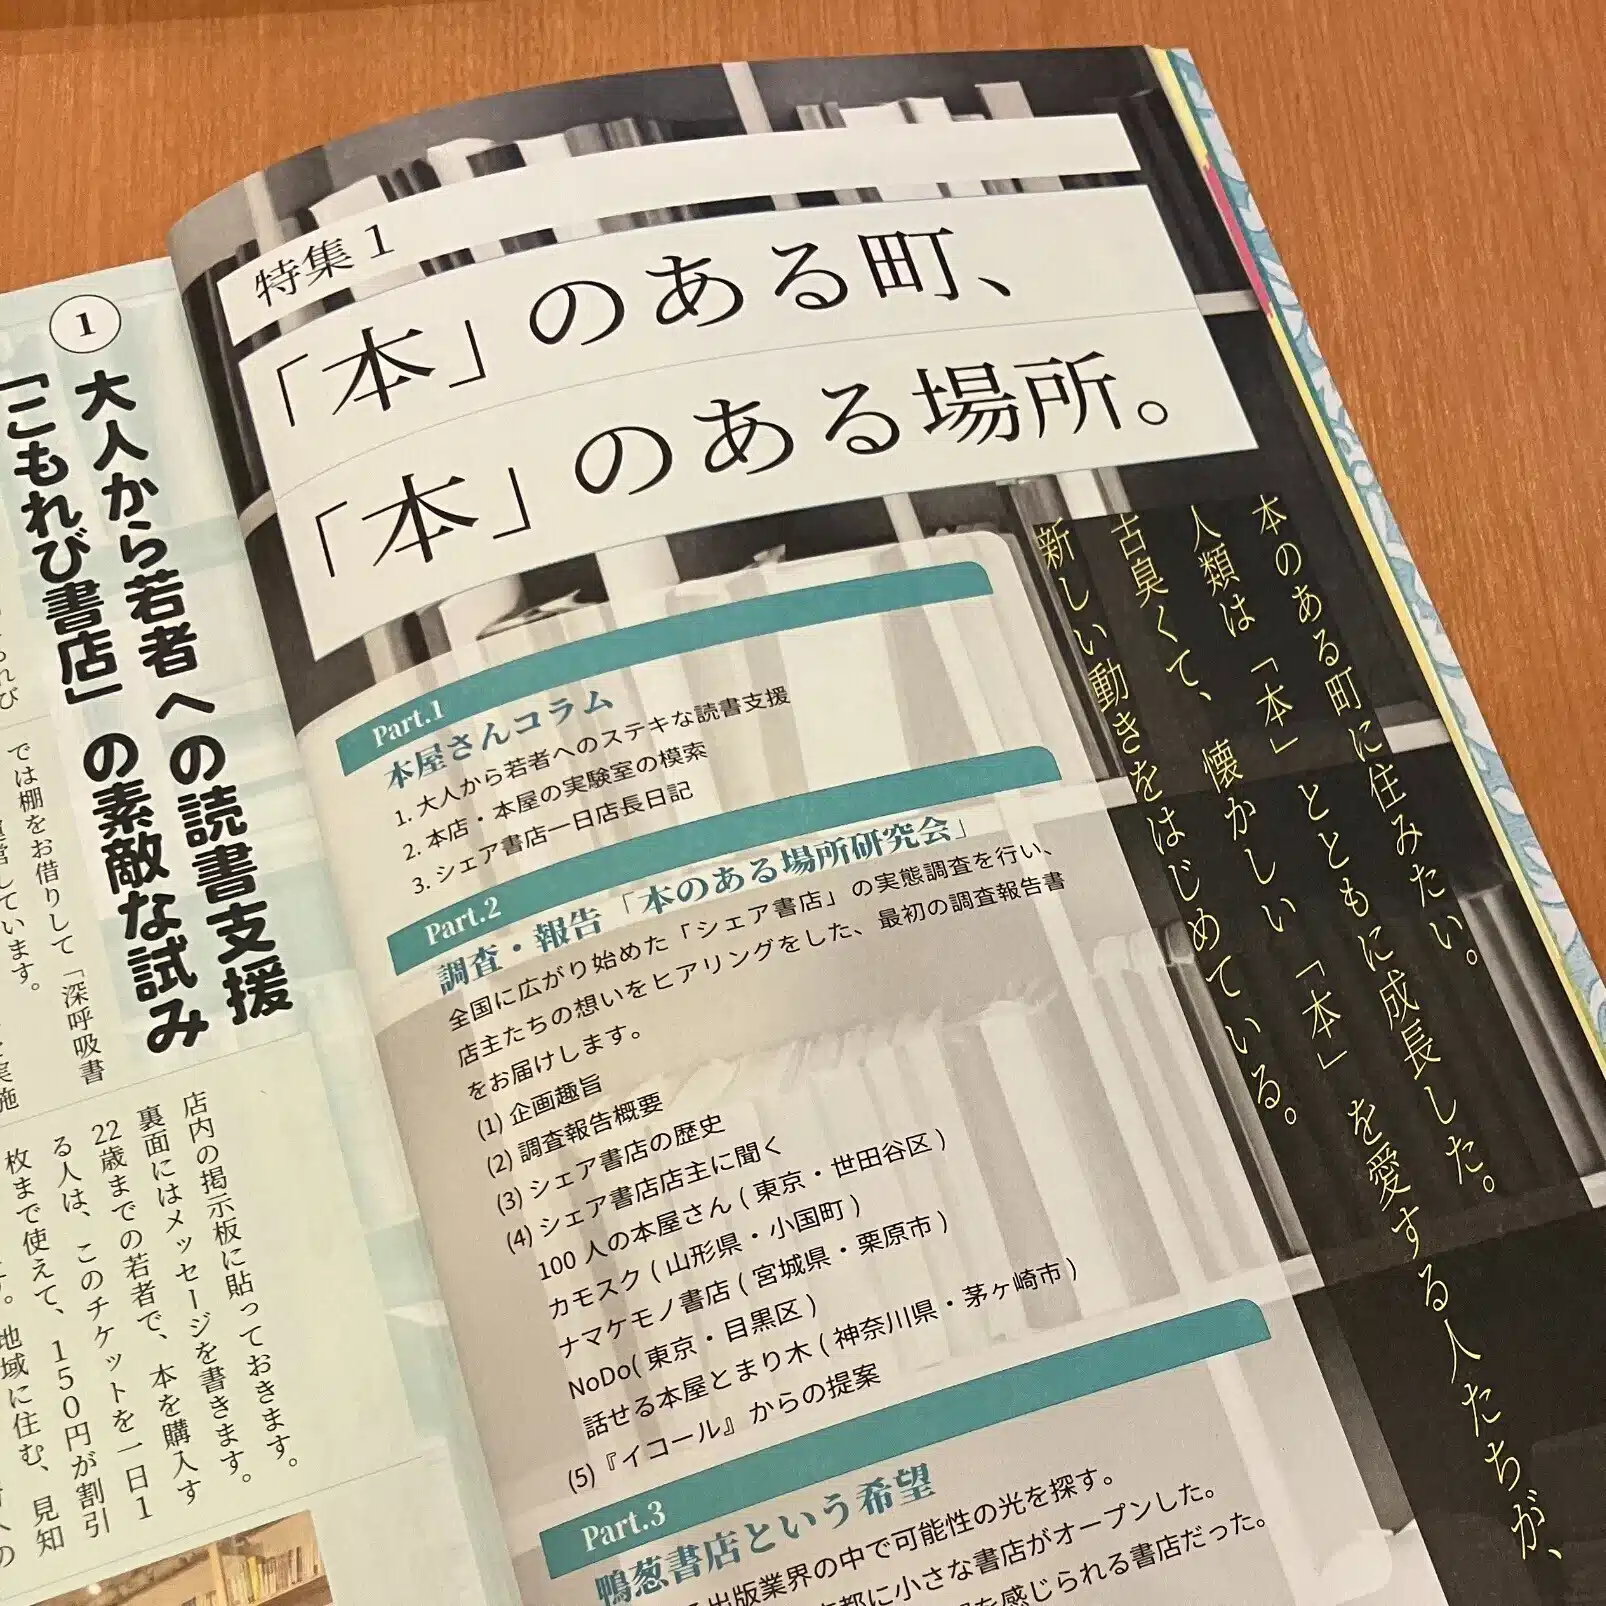 特集1
「本」のある町、
「本」のある場所。
本のある町に住みたい。
人類は「本」とともに成長した。
古臭くて、懐かしい「本」を愛する人たちが、
新しい動きをはじめている。
Part.1
本屋さんコラム
1. 大人から若者へのステキな読書支援
2. 本店・本屋の実験室の模索
3. シェア書店一日店長日記
Part.2
調査・報告「本のある場所研究会」
全国に広がり始めた「シェア書店」の実態調査を行い、
店主たちの想いをヒアリングをした、最初の調査報告書
をお届けします。
(1) 企画趣旨
(2) 調査報告概要
(3) シェア書店の歴史
(4) シェア書店店主に聞く
100 人の本屋さん ( 東京・世田谷区 )
カモスク ( 山形県・小国町 )
ナマケモノ書店 ( 宮城県・栗原市 )
NoDo( 東京・目黒区 )
話せる本屋とまり木 ( 神奈川県・茅ヶ崎市 )
(5)『イコール』からの提案
Part.3
鴨葱書店という希望
出版業界の中で可能性の光を探す。
都に小さな書店がオープンした。
を感じられる書店だった。
1
大人から若者への読書支援
「こもれび書店」の素敵な試み
では棚をお借りして「深呼吸書
営しています。
店内の掲示板に貼っておきます。
裏面にはメッセージを書きます。
22歳までの若者で、本を購入す
る人は、このチケットを一日1
枚まで使えて、150円が割引
地域に住む、見知